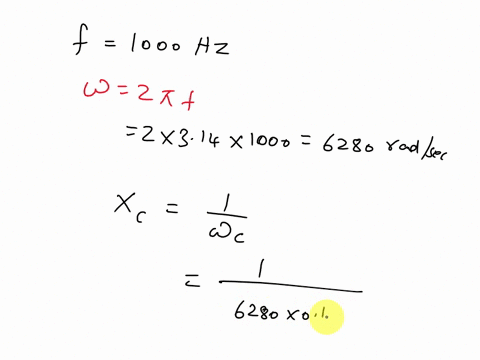 f = 1000 Hz
ω = 2πf
= 2 × 3.14 × 1000 = 6280 rad/sec
X_c = 1/ωc
= 1/6280 × 0.1